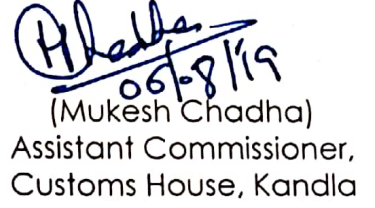 Chadha
06/08/19
(Mukesh Chadha)
Assistant Commissioner,
Customs House, Kandla